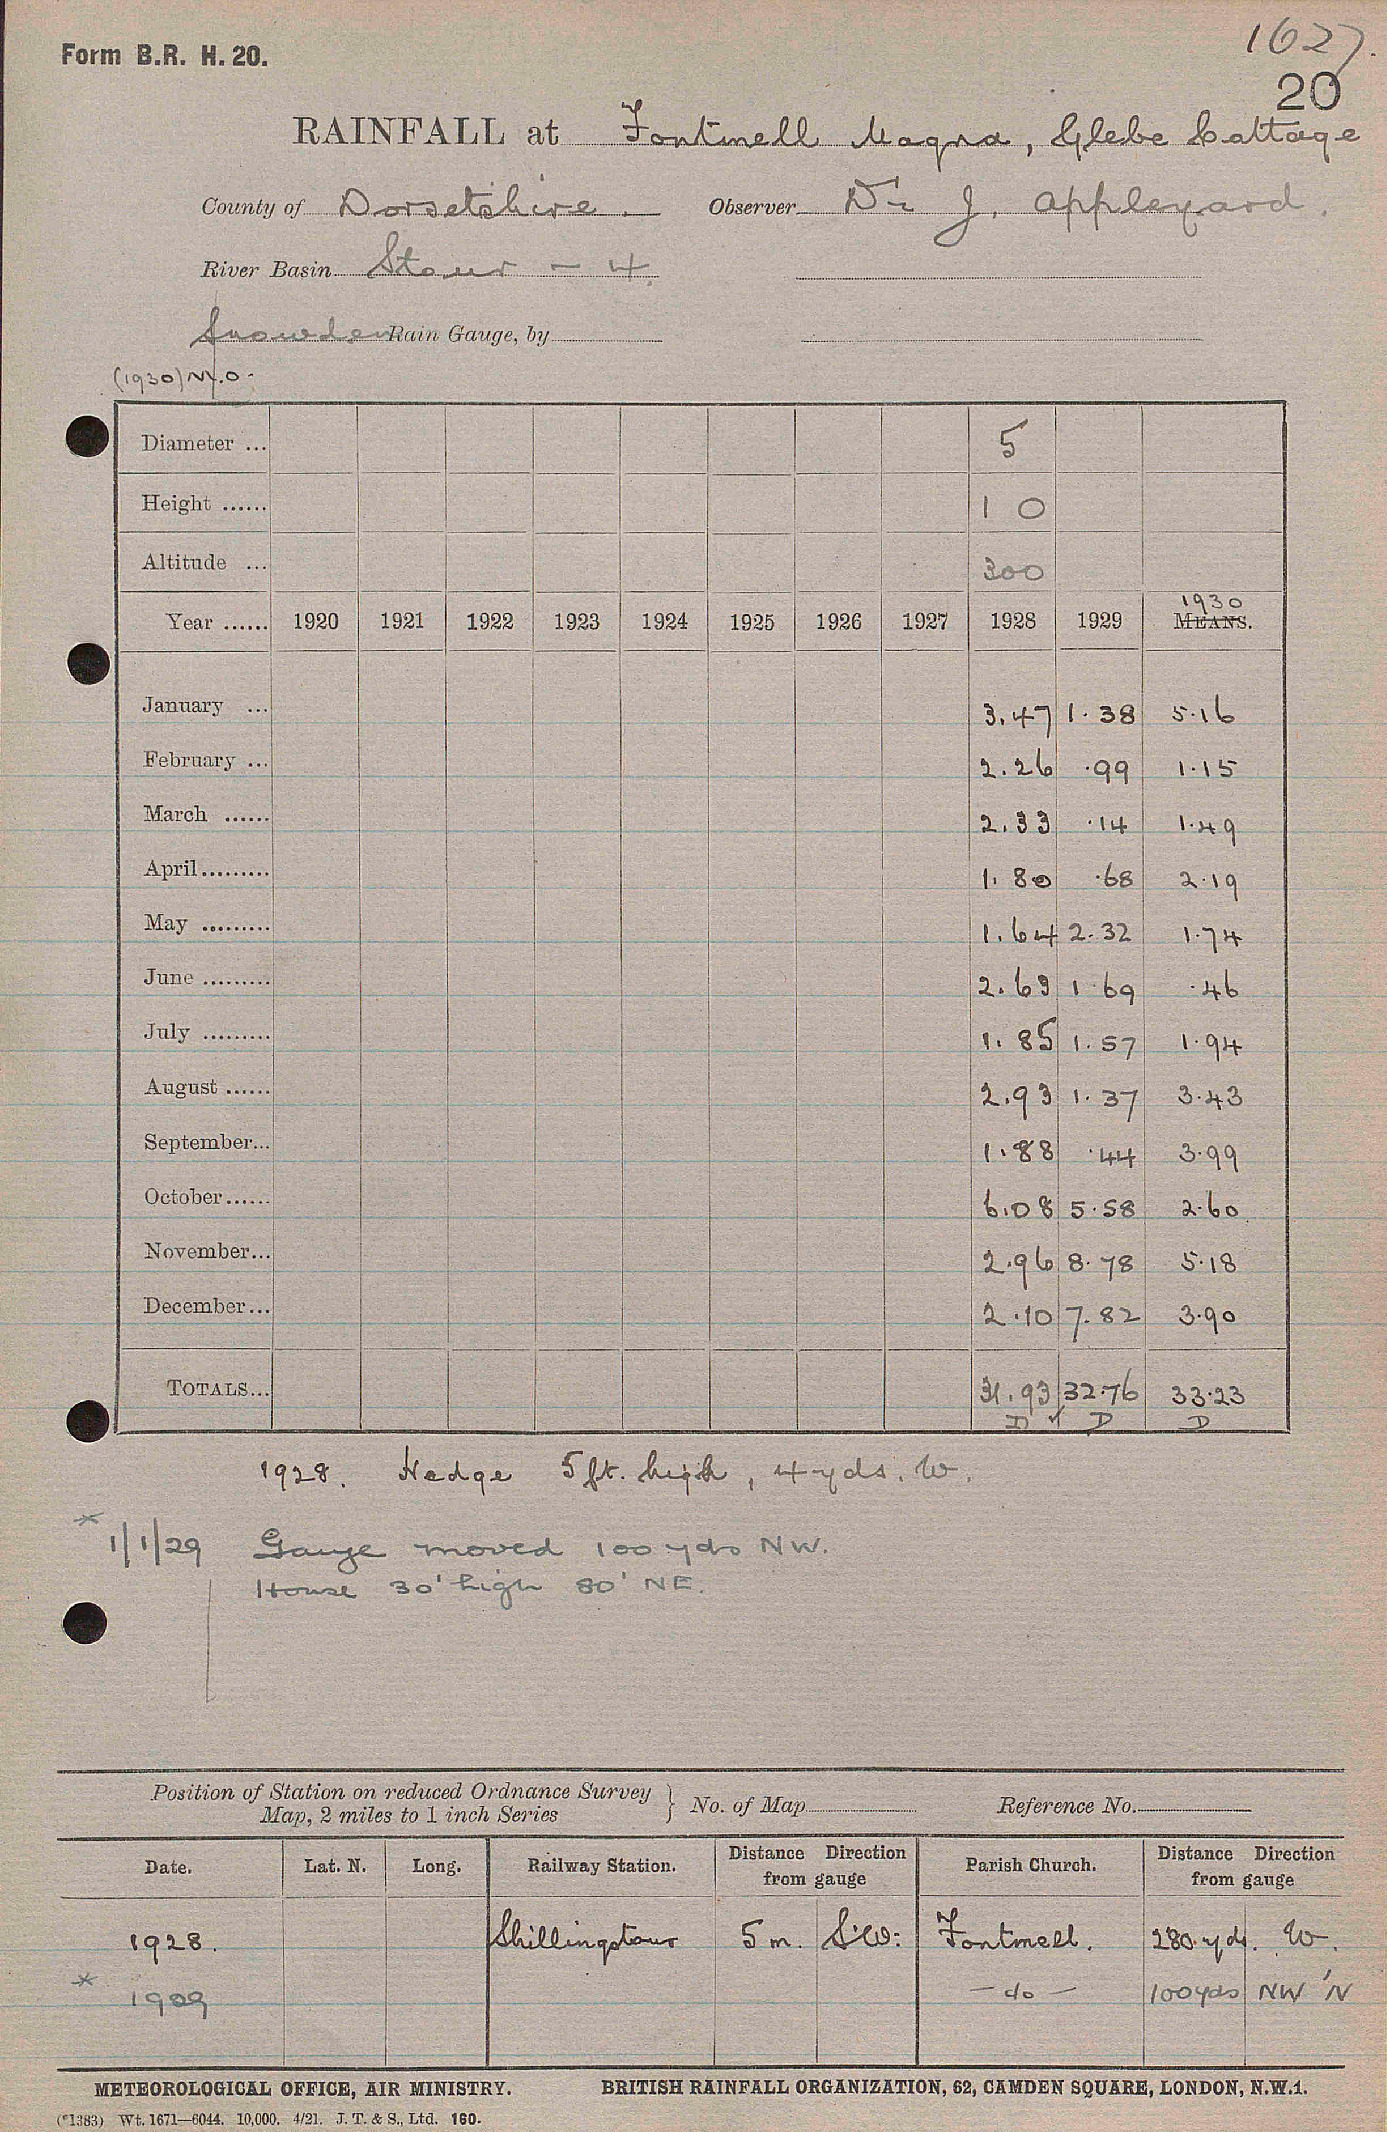 1627.
Form B.R. H. 20.
20
RAINFALL at Fontmell Magna, Glebe Cottage
County of Dorsetshire. Observer Dr J. Appleyard.
River Basin Stour - 4.
Snowden Rain Gauge, by
(1930) M.O.
Diameter ... 5
Height ...... 1 0
Altitude ... 300
Year ...... 1920 1921 1922 1923 1924 1925 1926 1927 1928 1929 1930 MEANS.
January ... 3.47 1.38 5.16
February ... 2.26 .99 1.15
March ...... 2.33 .14 1.49
April......... 1.80 .68 2.19
May ......... 1.64 2.32 1.74
June ......... 2.63 1.69 .46
July ......... 1.85 1.57 1.94
August ...... 2.93 1.37 3.43
September... 1.88 .44 3.99
October...... 6.08 5.58 2.60
November... 2.96 8.78 5.18
December... 2.10 7.82 3.90
TOTALS... 31.93 32.76 33.23
D ✓ D D
1928. Hedge 5ft. high, 4yds. W.
* 1/1/29 Gauge moved 100 yds NW.
House 30' high 80' NE.
Position of Station on reduced Ordnance Survey
Map, 2 miles to 1 inch Series } No. of Map Reference No.
Date. Lat. N. Long. Railway Station. Distance Direction from gauge Parish Church. Distance Direction from gauge
1928. Shillingstone 5 m. SW. Fontmell. 280 yds. W.
* 1929 - do - 100yds NW'N
METEOROLOGICAL OFFICE, AIR MINISTRY. BRITISH RAINFALL ORGANIZATION, 62, CAMDEN SQUARE, LONDON, N.W.1.
(*1383) Wt. 1671—6044. 10,000. 4/21. J. T. & S., Ltd. 160.